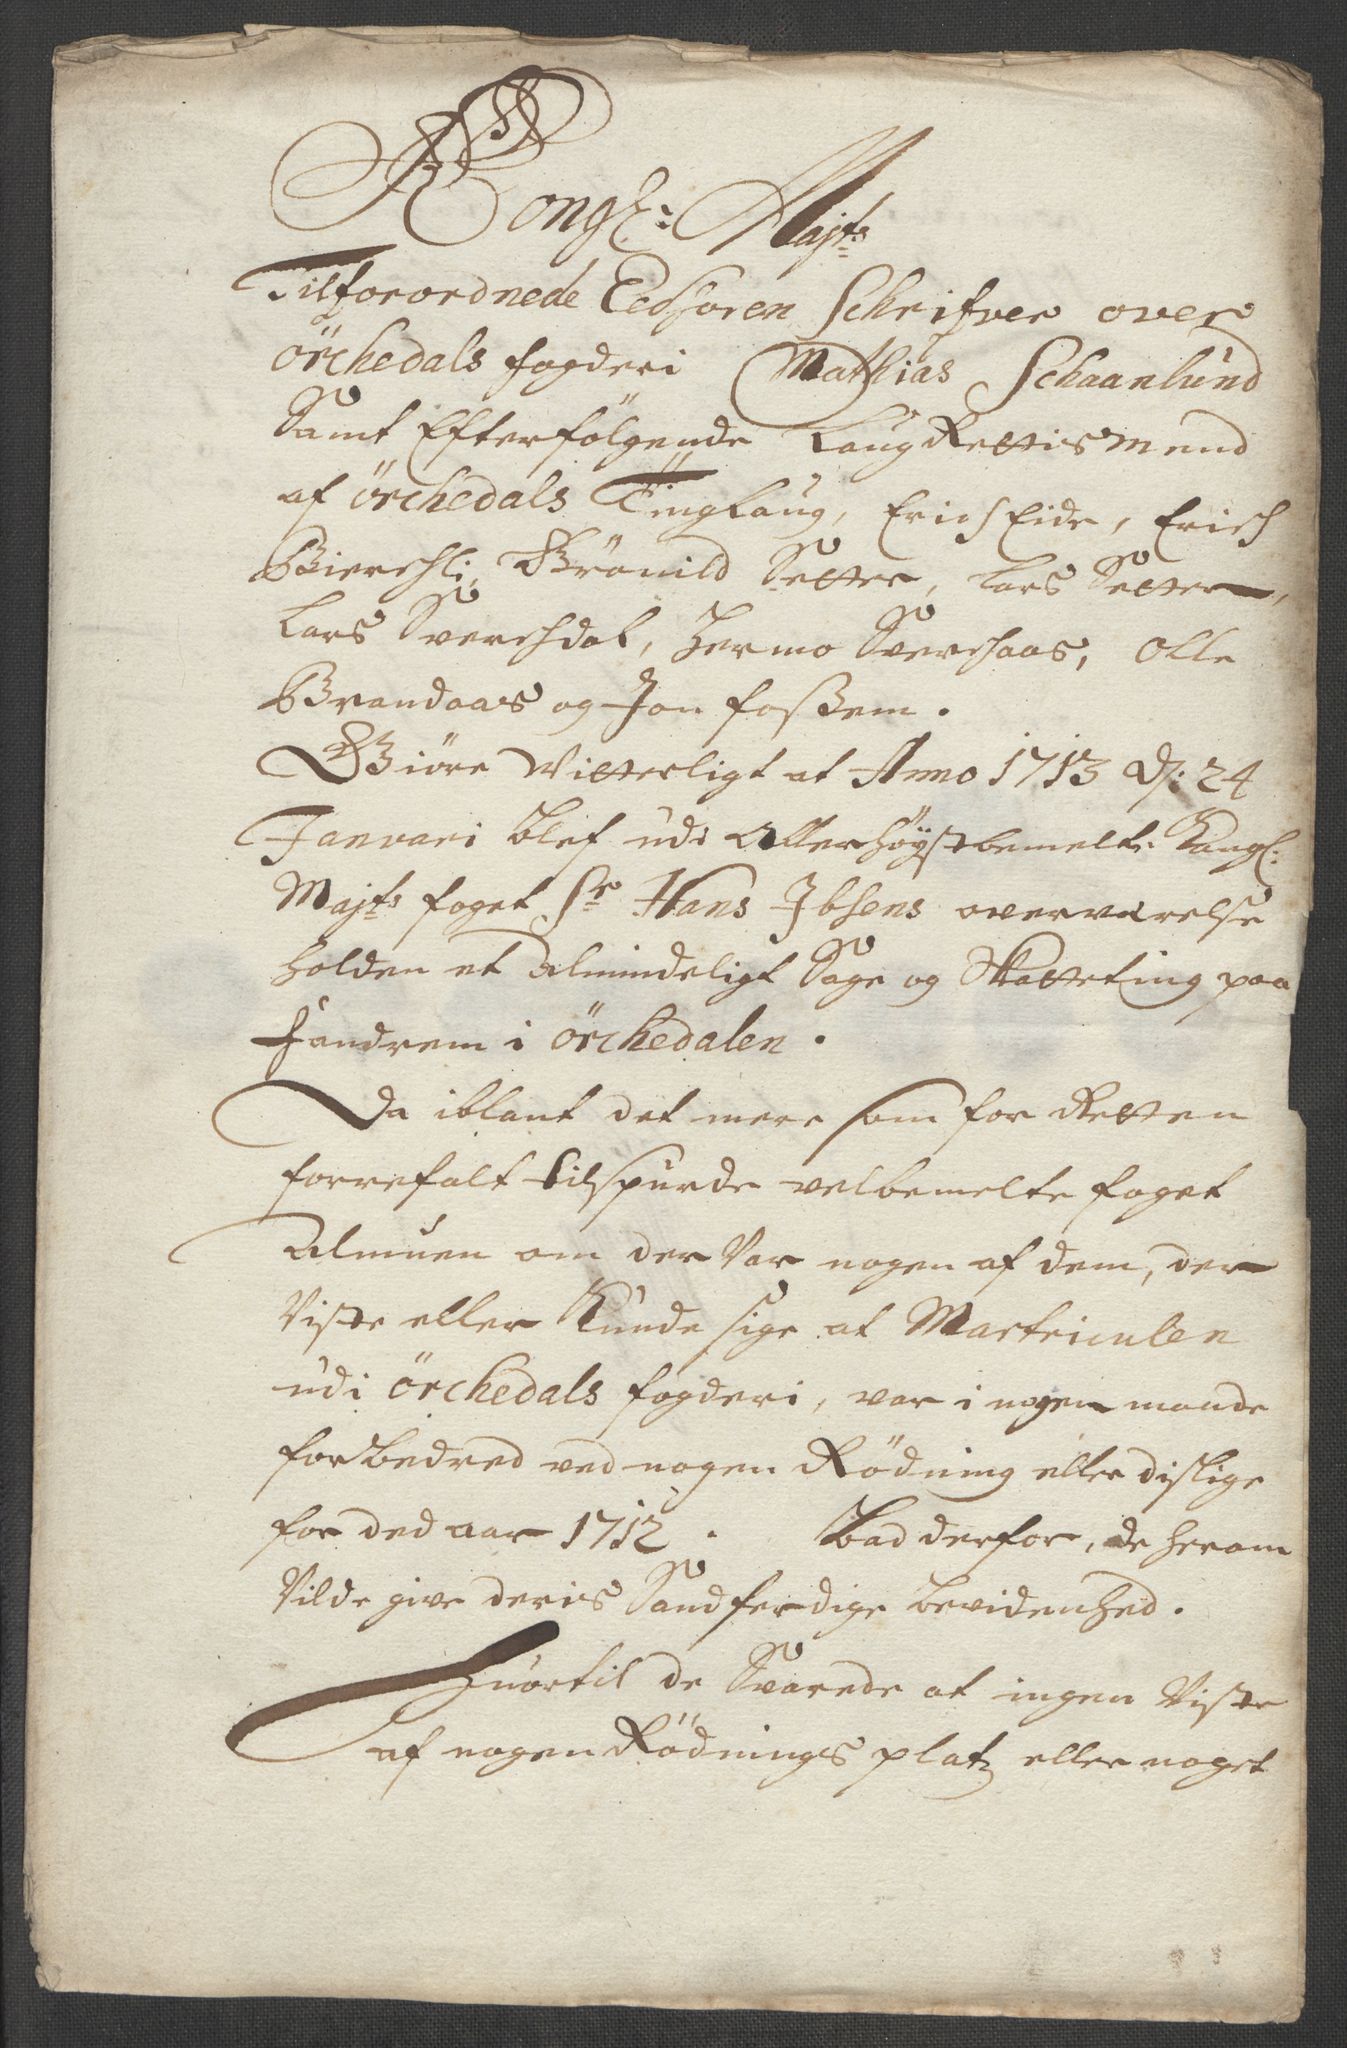 Kongl: Majts
Tilforordnede Eedsoren Schrifver over
Örchedals fogderi Mathias Schaanlund
Samt Efterfölgende LaugRettismend
af Örchedals Tinglaug, Erich Eide, Erich
Bierchli, Brönild Setter, Lars Setter,
Lars Sverchdal, Hermo Sverchaas, Olle
Brandaas og Jon Fossem.
Giöre Witterligt at Anno 1713 d: 24
Januari blef udi Allerhöystbemelte Kongl:
Majts foget Sr Hans Ibsens overværelse
holden et Almindeligt Sage og Skatteting paa
Fandrem i Örchedalen.
Da iblant det mere som for Retten
forrefalt tilspurde velbemelte foget
Almuen om der Var nogen af dem, der
Viste eller Kunde sige at Martriculen
udi Örchedals fogderi, var i nogen maade
forbedred ved nogen Rödning eller dislige
for ded aar 1712. Bad derfor, de herom
Vilde give deris Sandferdige bevidenhed.
Huortil de Svarede at ingen Viste
af nogen Rödnings platz eller noget